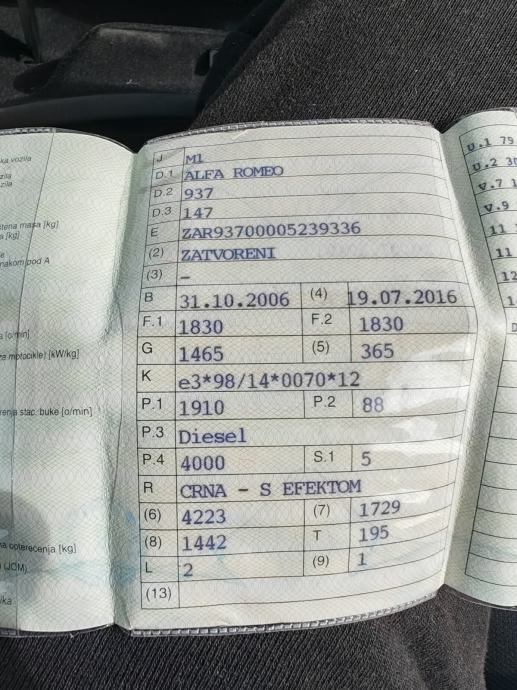 ka vozila
J M1
D.1 ALFA ROMEO
D.2 937
D.3 147
masa [kg]
[kg]
E ZAR93700005239336
(2) ZATVORENI
nakom pod A
(3) –
B 31.10.2006 (4) 19.07.2016
F.1 1830 F.2 1830
G 1465 (5) 365
[kW/kg]
K e3*98/14*0070*12
P.1 1910 P.2 88
stac. buke [o/min]
P.3 Diesel
P.4 4000 S.1 5
R CRNA - S EFEKTOM
(6) 4223 (7) 1729
(8) 1442 T 195
opterećenja [kg]
L 2 (9) 1
(13)
U.1 79
U.2 30
V.7 1
V.9
11
11
12